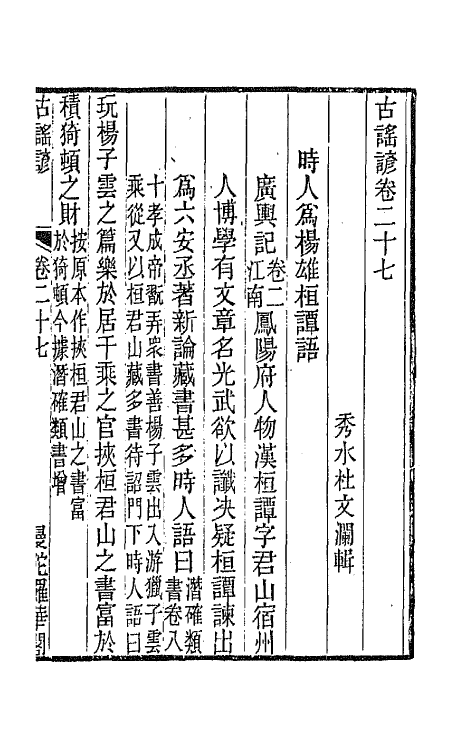 古謠諺卷二十七
秀水杜文瀾輯
時人爲楊雄桓譚語
廣輿記卷二江南鳳陽府人物漢桓譚字君山宿州
人博學有文章名光武欲以讖决疑桓譚諫出
爲六安丞著新論藏書甚多時人語曰潛確類書卷八
十孝成帝翫弄衆書善楊子雲出入游獵子雲
乘從又以桓君山藏多書待詔門下時人語曰
玩楊子雲之篇樂於居千乘之官挾桓君山之書富於
積猗頓之財按原本作挾桓君山之書富於猗頓今據潛確類書增
古謠諺 卷二十七 曼陀羅華閣